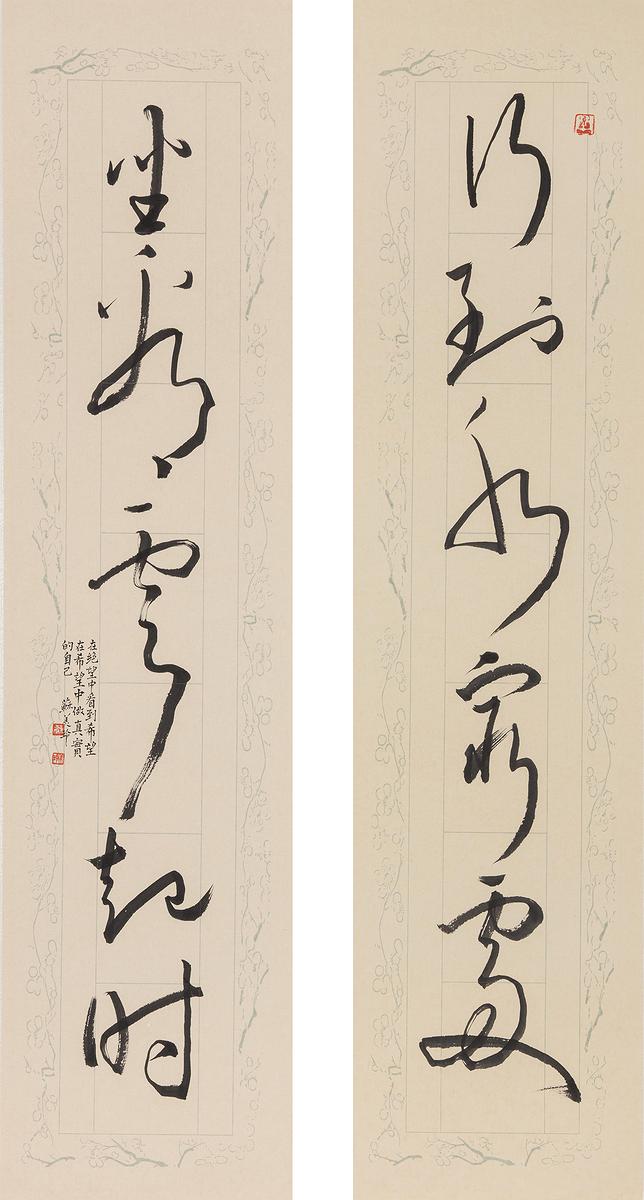 行到水窮處
坐看雲起時
在絕望中看到希望
在希望中做真實
的自己
蘇